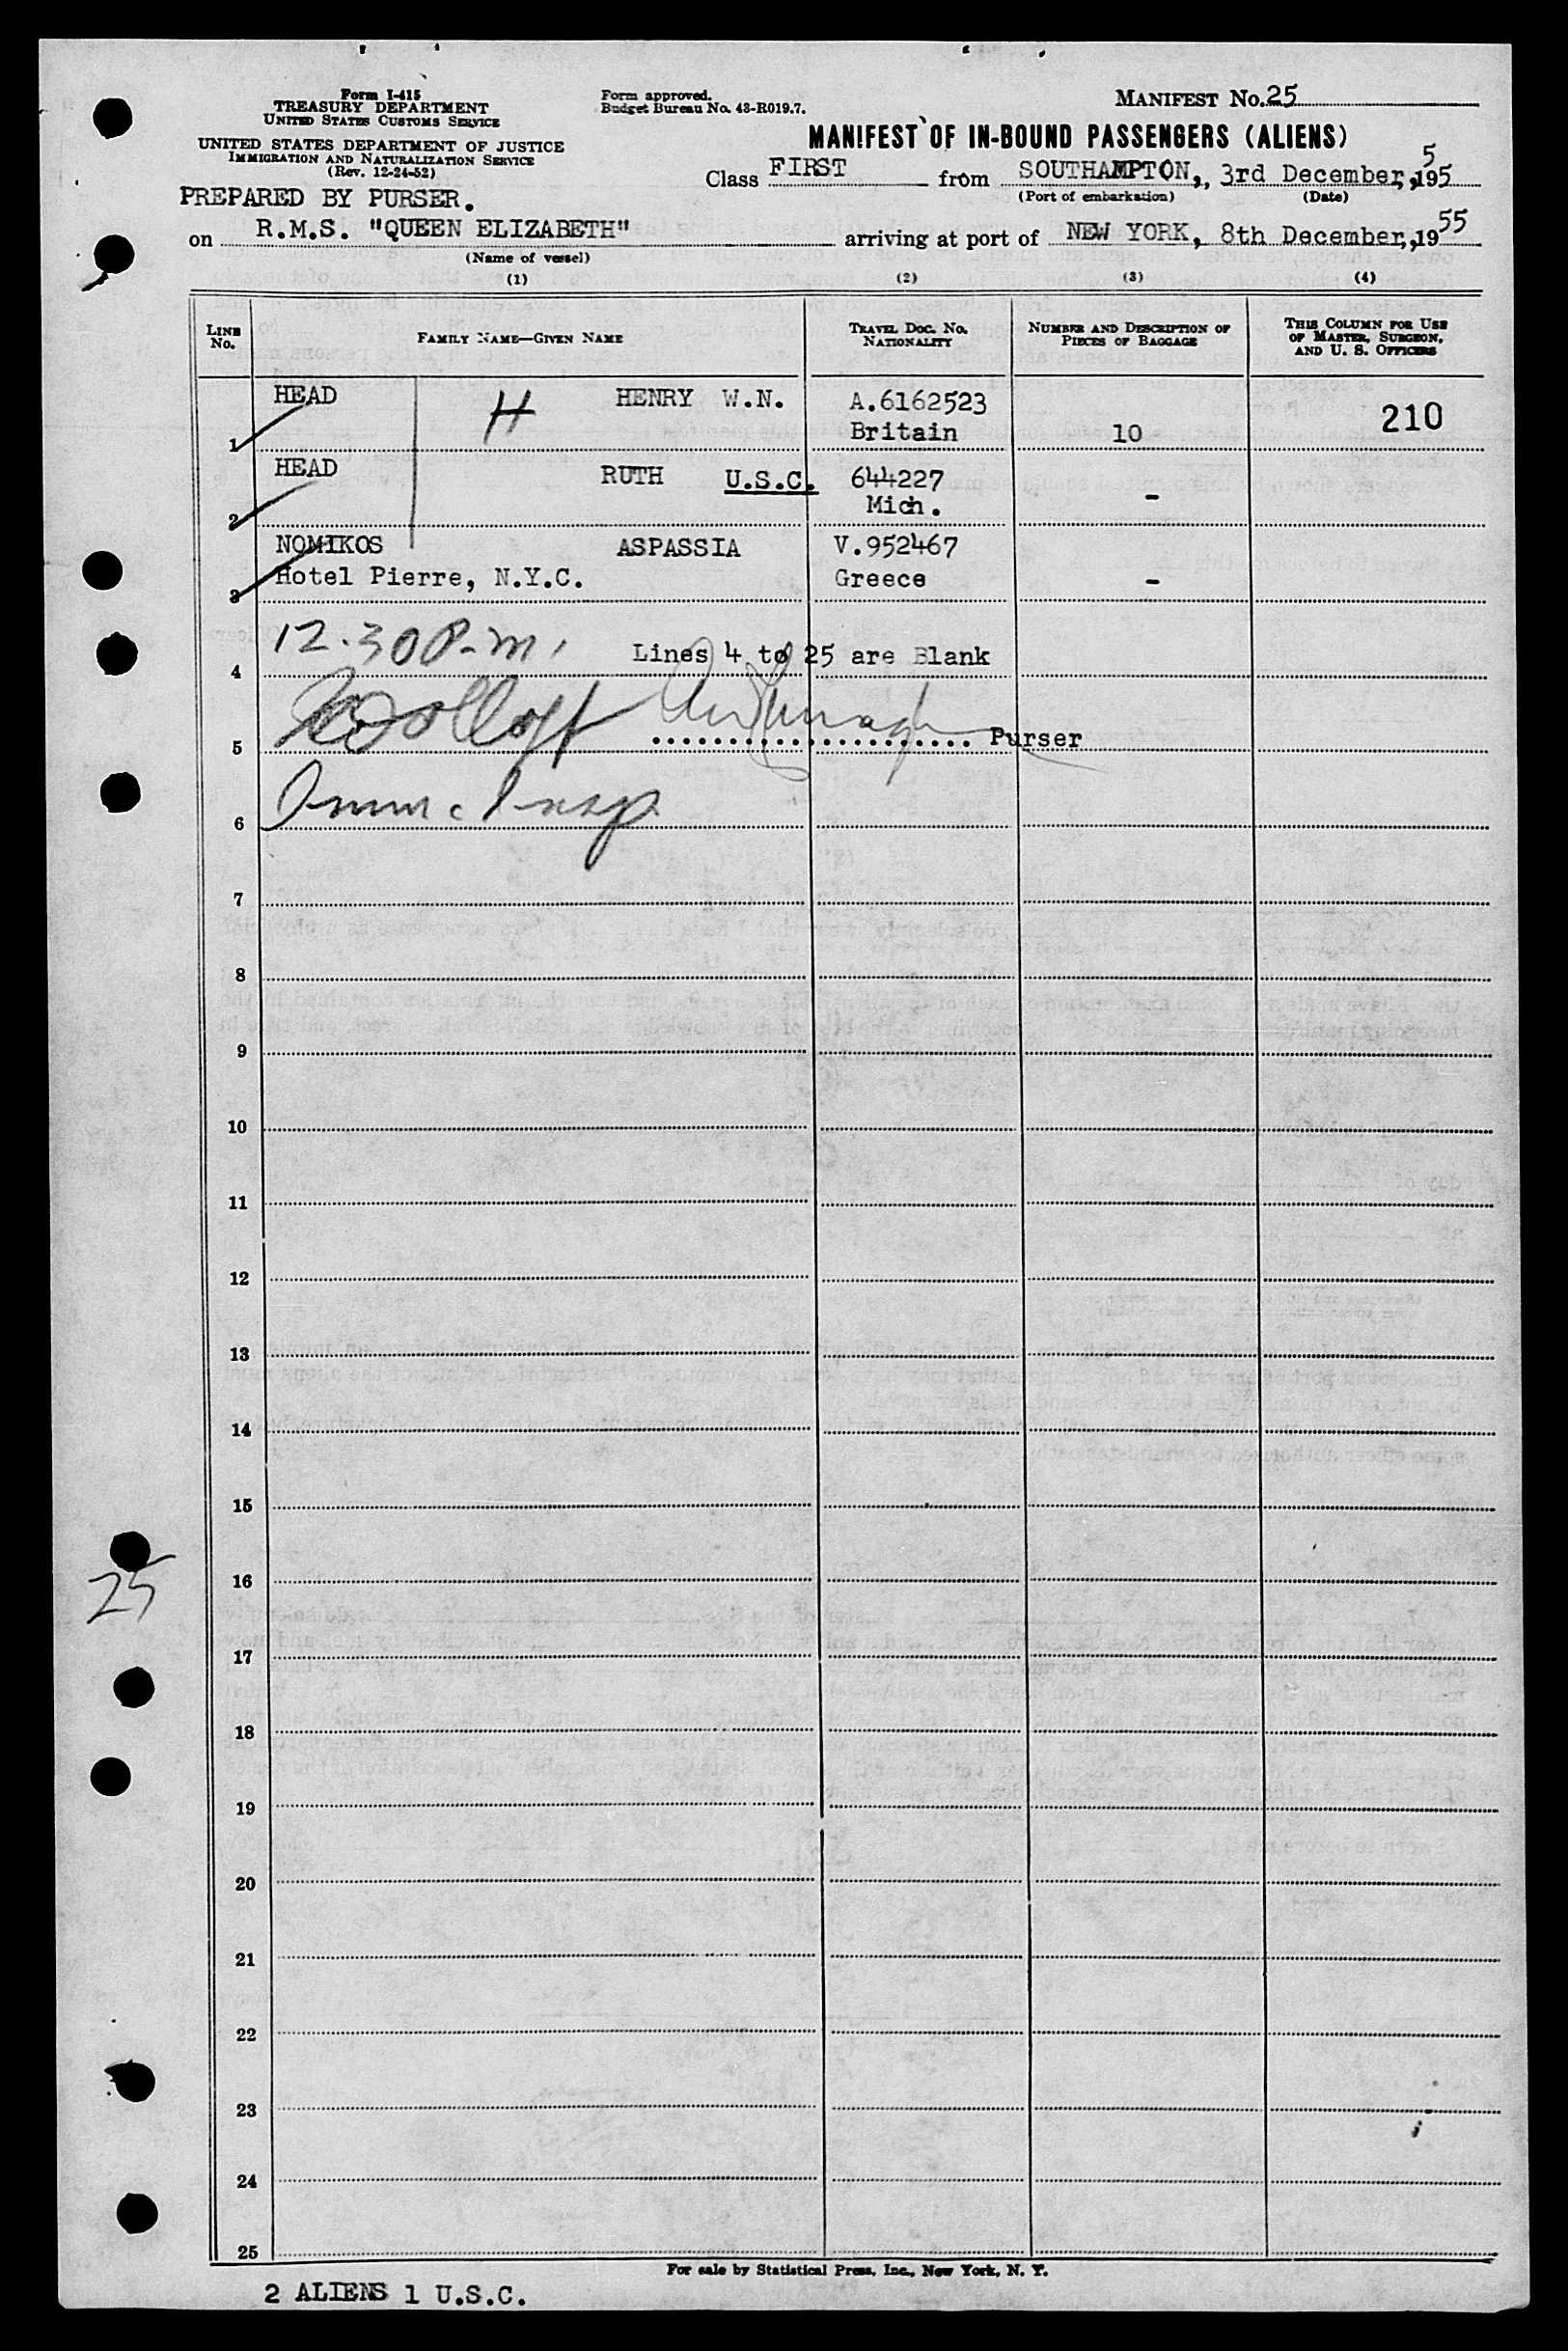 Form I-415
TREASURY DEPARTMENT
UNITED STATES CUSTOMS SERVICE
UNITED STATES DEPARTMENT OF JUSTICE
IMMIGRATION AND NATURALIZATION SERVICE
(Rev. 12-24-52)
Form approved.
Budget Bureau No. 43-R019.7.
MANIFEST No. 25
MANIFEST OF IN-BOUND PASSENGERS (ALIENS)
PREPARED BY PURSER.
Class FIRST from SOUTHAMPTON, , 3rd December, , 195 5
(Port of embarkation) (Date)
on R.M.S. "QUEEN ELIZABETH" arriving at port of NEW YORK, 8th December, , 19 55
(Name of vessel)
(1) (2) (3) (4)
LINE No. FAMILY NAME—GIVEN NAME TRAVEL DOC. NO. NATIONALITY NUMBER AND DESCRIPTION OF PIECES OF BAGGAGE THIS COLUMN FOR USE OF MASTER, SURGEON, AND U. S. OFFICERS
HEAD H HENRY W.N. A.6162523 210
1 Britain 10
HEAD RUTH U.S.C. 644227
2 Mich. -
NOMIKOS ASPASSIA V.952467
3 Hotel Pierre, N.Y.C. Greece -
12.30 P.m.
4 Lines 4 to 25 are Blank
5 Woolloff .................... Purser
6 Imm. Insp
7
8
9
10
11
12
13
14
15
16
25
17
18
19
20
21
22
23
24
25
For sale by Statistical Press, Inc., New York, N. Y.
2 ALIENS 1 U.S.C.